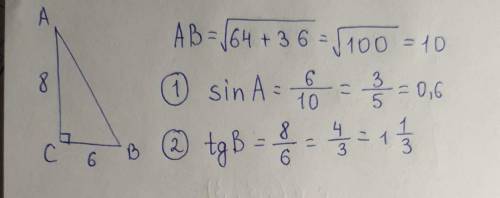 A
8
C
6
B
AB = √64 + 36 = √100 = 10
① sin A = 6/10 = 3/5 = 0,6
② tg B = 8/6 = 4/3 = 1 1/3